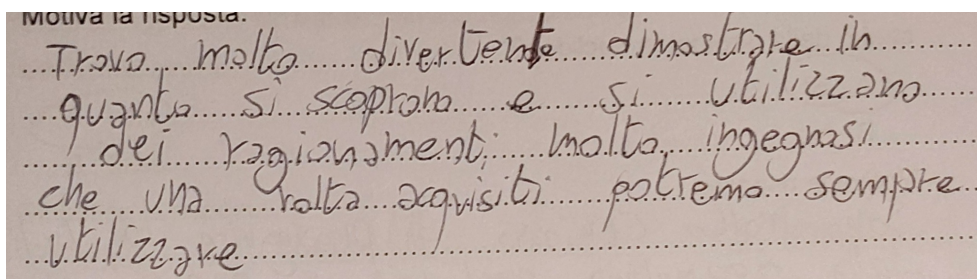 Motiva la risposta.
Trovo molto divertente dimostrare in
quanto si scoprono e si utilizzano
dei ragionamenti molto ingegnosi
che una volta acquisiti potremo sempre
utilizzare